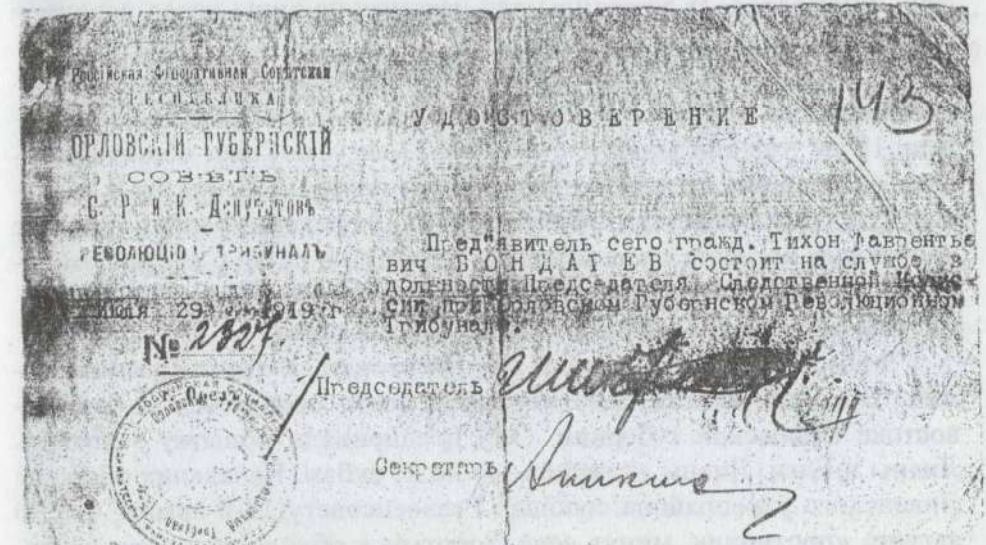 Россійская Федеративная Совѣтская
РЕСПУБЛИКА
ОРЛОВСКІЙ ГУБЕРНСКІЙ
СОВѢТЪ
С. Р. и К. Депутатовъ
РЕВОЛЮЦІОН ТРИБУНАЛЪ
29 1919 г
№ 2327.
143
УДОСТОВЕРЕНИЕ
Пред"явитель сего гражд. Тихон Лаврентье
вич БОНДАРЕВ состоит на службе в
должности Председателя Следственной Комис
сии при Орловском Губернском Революционном
Трибунале.
Председатель
Секретарь Аникина